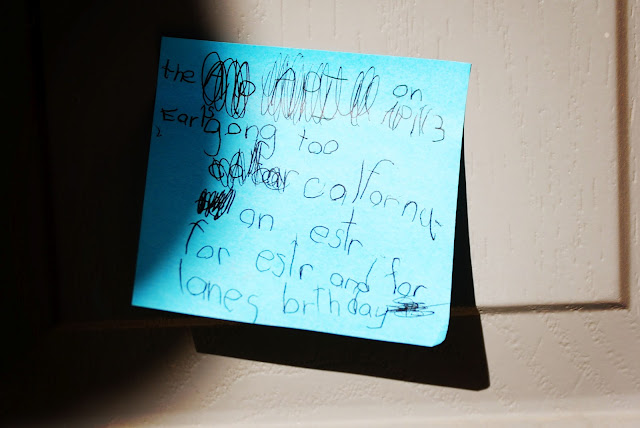 the on
Earl is
gong too
calforna
on estr
for estr and for
lanes brthday